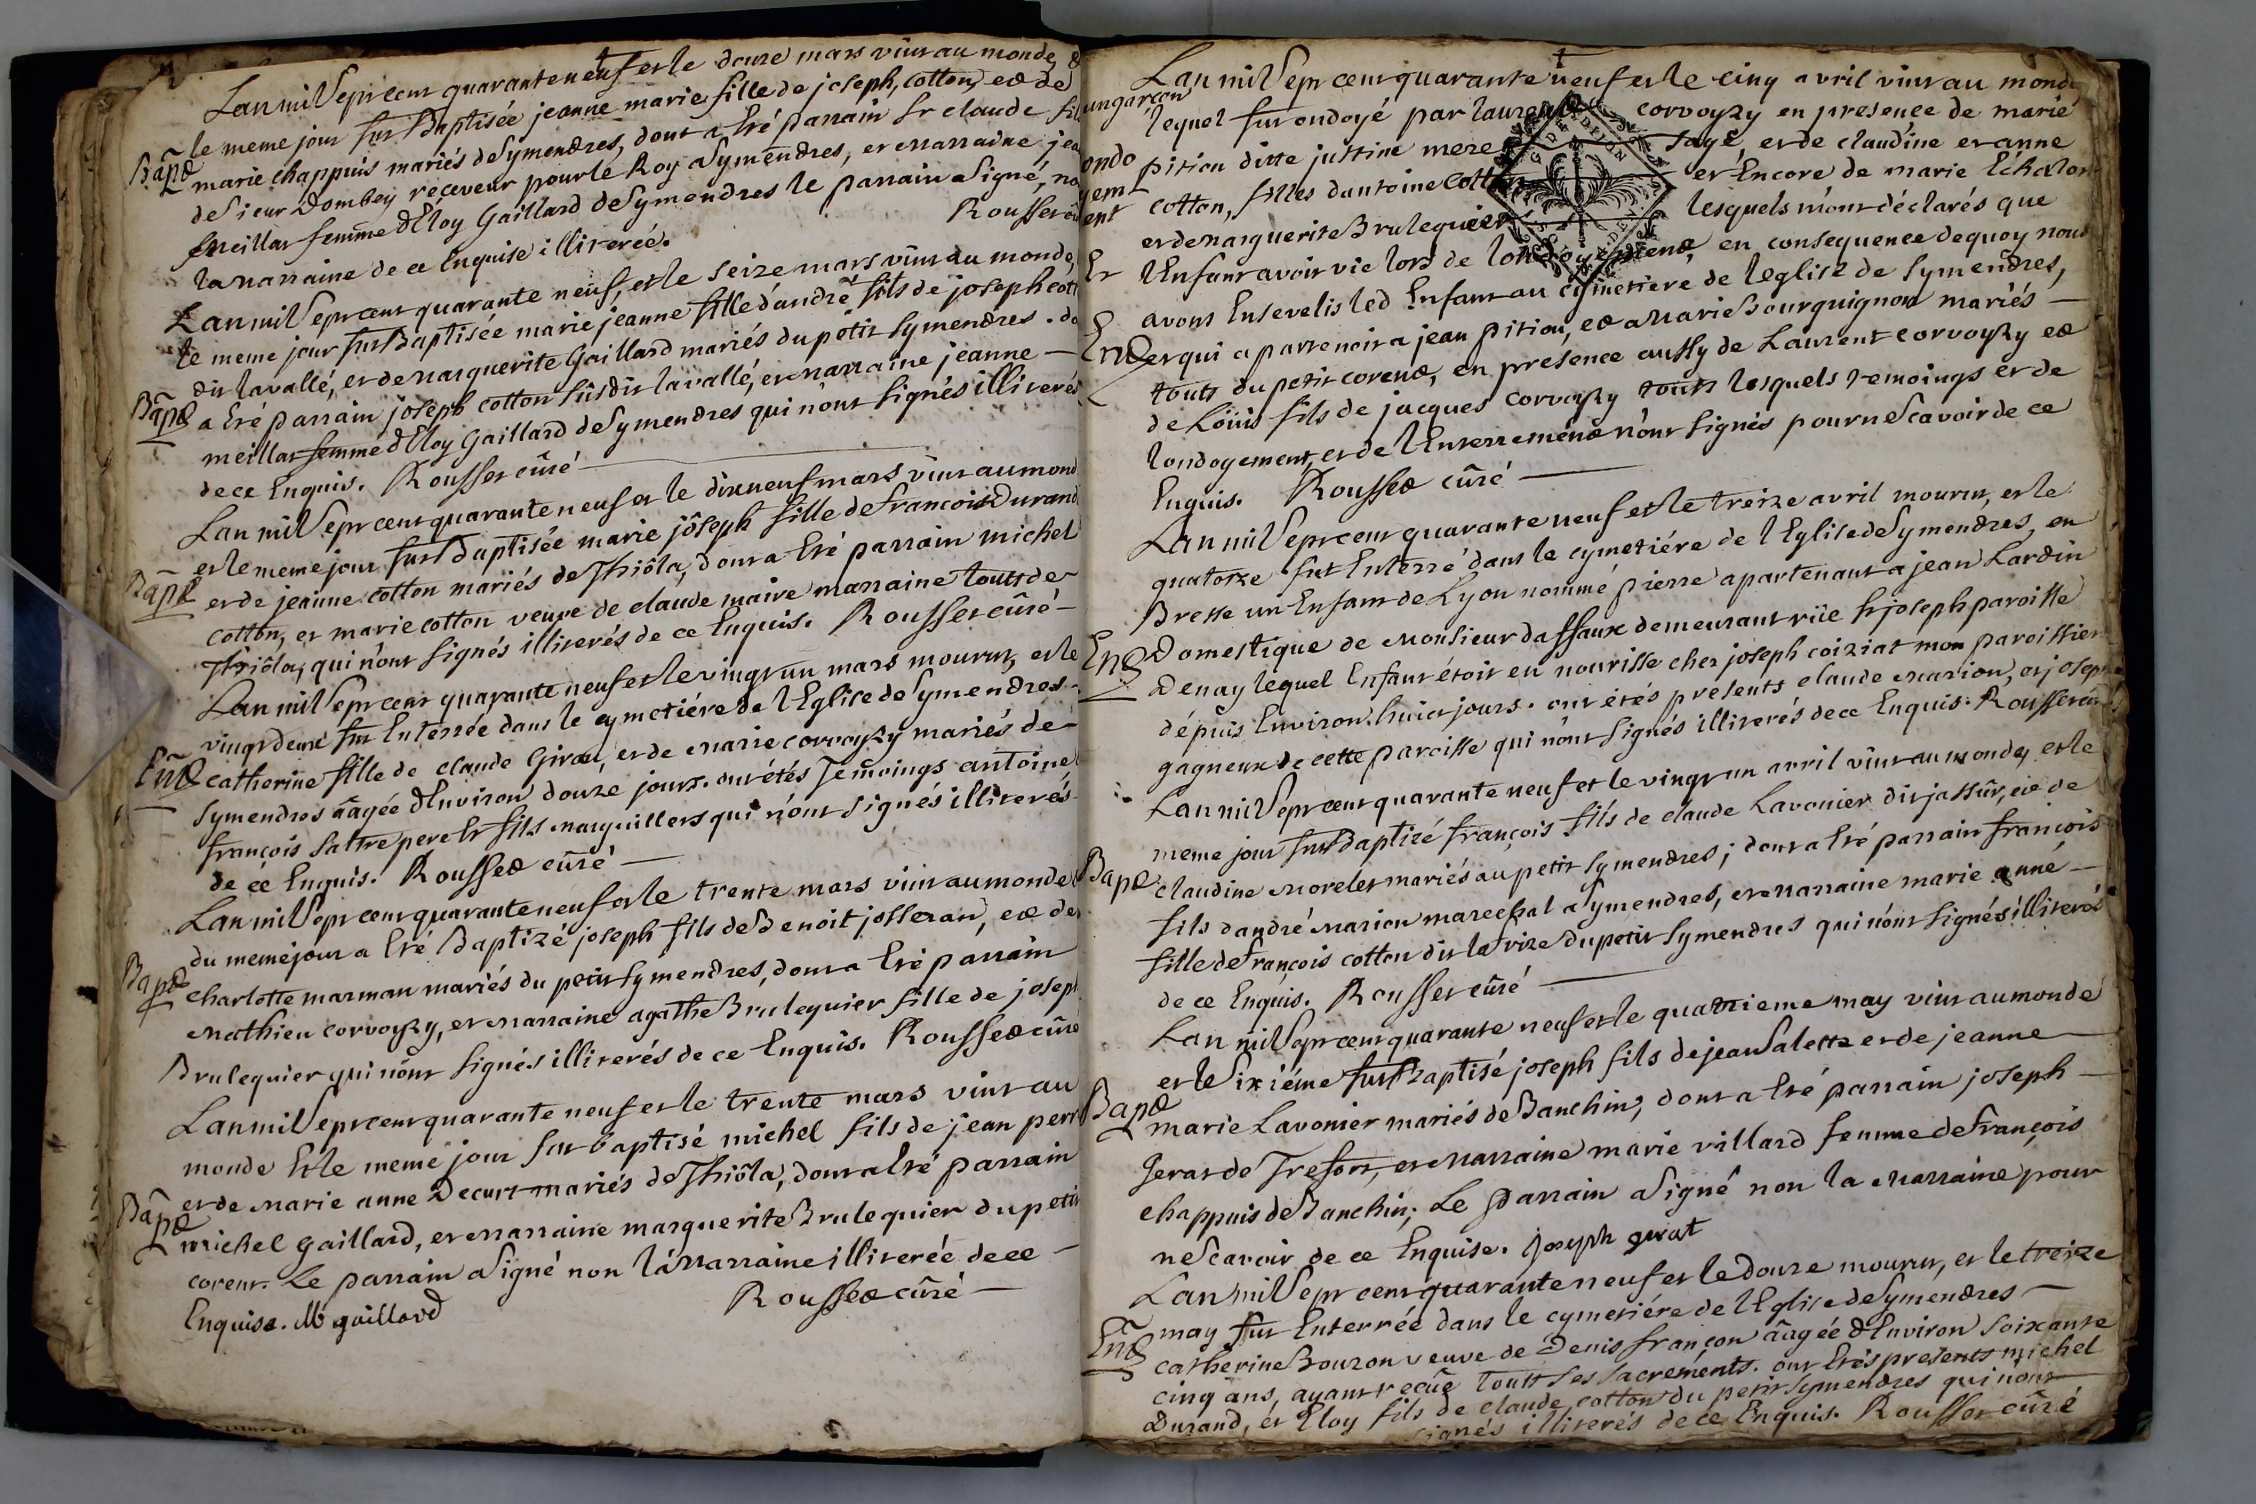 Lan mil Sept cent quarante neuf et le douze mars vint au monde, &
le meme jour fut Baptisée jeanne marie fille de joseph Cotton, et de
Bapt marie chappuis mariés de Symendres, dont a Eté parrain Sr claude fil
de Sieur Dombey receveur pour le Roy a Symendres, et marraine jea
meillat femme d'Eloy Gaillard de Symendres le parrain a Signé, no
la marraine de ce Enquise illiterée. Rousset cu
Lan mil Sept cent quarante neuf, et le seize mars vint au monde,
le meme jour fut Baptisée marie jeanne fille d'andré fils de joseph cott
dit lavallé, et de marguerite Gaillard mariés du petit Symendres. do
Bapt a Eté parrain joseph cotton susdit lavallé, et marraine jeanne —
meillat femme d'Eloy Gaillard de Symendres qui n'ont signés illiterés
de ce Enquis. Rousset cûré —
Lan mil Sept cent quarante neuf et le dix neuf mars vint au mond
et le meme jour fut Baptisée marie jôseph fille de francois Durand
Bapt et de jeanne cotton mariés de Thiôla, dont a Eté parrain michel
cotton, et marie cotton veuve de claude maire marraine touts de
Thiôla, qui n'ont signés illiterés de ce Enquis. Rousset cûré —
Lan mil Sept cent quarante neuf et le vingt un mars mourut, et le
vingt deux fut Enterrée dans le cymetiére de l'Eglise de Symendres —
Ent catherine fille de claude Girou, et de marie corvoysy mariés de
Symendres âagée d'Environ douze jours. ont étés Temoings antoine
françois Sattre pere Et fils marguillers qui n'ont signés illiterés
de ce Enquis. Rousset cûré —
Lan mil Sept cent quarante neuf et le trente mars vint au monde
du meme jour a Eté Baptizé joseph fils de Benoit josseran, et de
Bapt charlotte marman mariés du petit Symendres, dont a Eté parrain
mathieu corvoysy, et marraine agathe Brulequier fille de joseph
Brulequier qui n'ont signés illiterés de ce Enquis. Rousset cûré
Lan mil Sept cent quarante neuf et le trente mars vint au
monde Et le meme jour fut baptisé michel fils de jean perr
et de marie anne Decurt mariés de Thiôla, dont a Eté parrain
Bapt michel Gaillard, et marraine marguerite Brulequier du petit
corent. Le parrain a Signé non la marraine illiterée de ce —
Enquise. M gaillard Rousset cûré —
Lan mil Sept cent quarante neuf et le cinq avril vint au monde
un garçon lequel fut ondoyé par laurent corvoysy en presence de marie
ondoyement pition ditte justine mere Sage, et de claudine et anne
cotton, filles d'antoine Cotton et Encore de marie Echalon
et de marguerite Brulequier lesquels m'ont déclarés que
Et l'Enfant avoit vie lors de l'ondoyement, en consequence de quoy nous
avons Ensevelis led Enfant au cymetiere de leglise de Symendres,
Ent et qui apartenoit a jean pition, et a marie Bourguignon mariés —
touts du petit corent, en presence aussy de Laurent corvoysy et
de Loüis fils de jacques corvoysy touts lesquels temoings et de
londoyement, et de l'Enterrement n'ont signés pour ne Scavoir de ce
Enquis. Rousset cûré —
Lan mil Sept cent quarante neuf et le treize avril mourut, et le
quatorze fut Enterré dans le cymetiére de l'Eglise de Symendres, en
Bresse un Enfant de Lyon nommé pierre apartenant a jean Lardin
Ent Domestique de monsieur dassaux demeurant rüe st joseph paroisse
Denay lequel Enfant étoit en nourisse chez joseph coiziat mon paroissien
dépuis Environ huict jours. ont étés presents claude marion, et joseph
gagneux de cette paroisse qui n'ont signés illiterés de ce Enquis. Rousset cûré
Lan mil Sept cent quarante neuf et le vingt un avril vint au monde, et le
meme jour fut Baptizé françois fils de claude Lavonier dit jassûr, et de
Bapt claudine morelet mariés au petit Symendres; dont a Eté parrain françois
fils d'andré marion marechal a Symendres, et marraine marie anne —
fille de françois cotton dit la frize du petit Symendres qui n'ont signés illiterés
de ce Enquis. Rousset cûré —
Lan mil Sept cent quarante neuf et le quatrieme may vint au monde
et le Sixiéme fut Baptisé joseph fils de jean Salette et de jeanne —
Bapt marie Lavonier mariés de Banchin, dont a Eté parrain joseph —
Gerat de Trefort, et marraine marie villard femme de François
chappuis de Banchin; Le parrain a Signé non la marraine pour
ne Scavoir de ce Enquise. joseph gerat
Lan mil Sept cent quarante neuf et le Douze mourut, et le treize
may fut Enterrée dans le cymetiére de l'Eglise de Symendres —
Ent catherine Bouzon veuve de Denis françon âagée d'Environ soixante
cinq ans, ayant recûe touts ses sacrements. ont Etés presents michel
Durand, et Eloy fils de claude cotton du petit Symendres qui n'ont
signés illiterés de ce Enquis. Rousset cûré